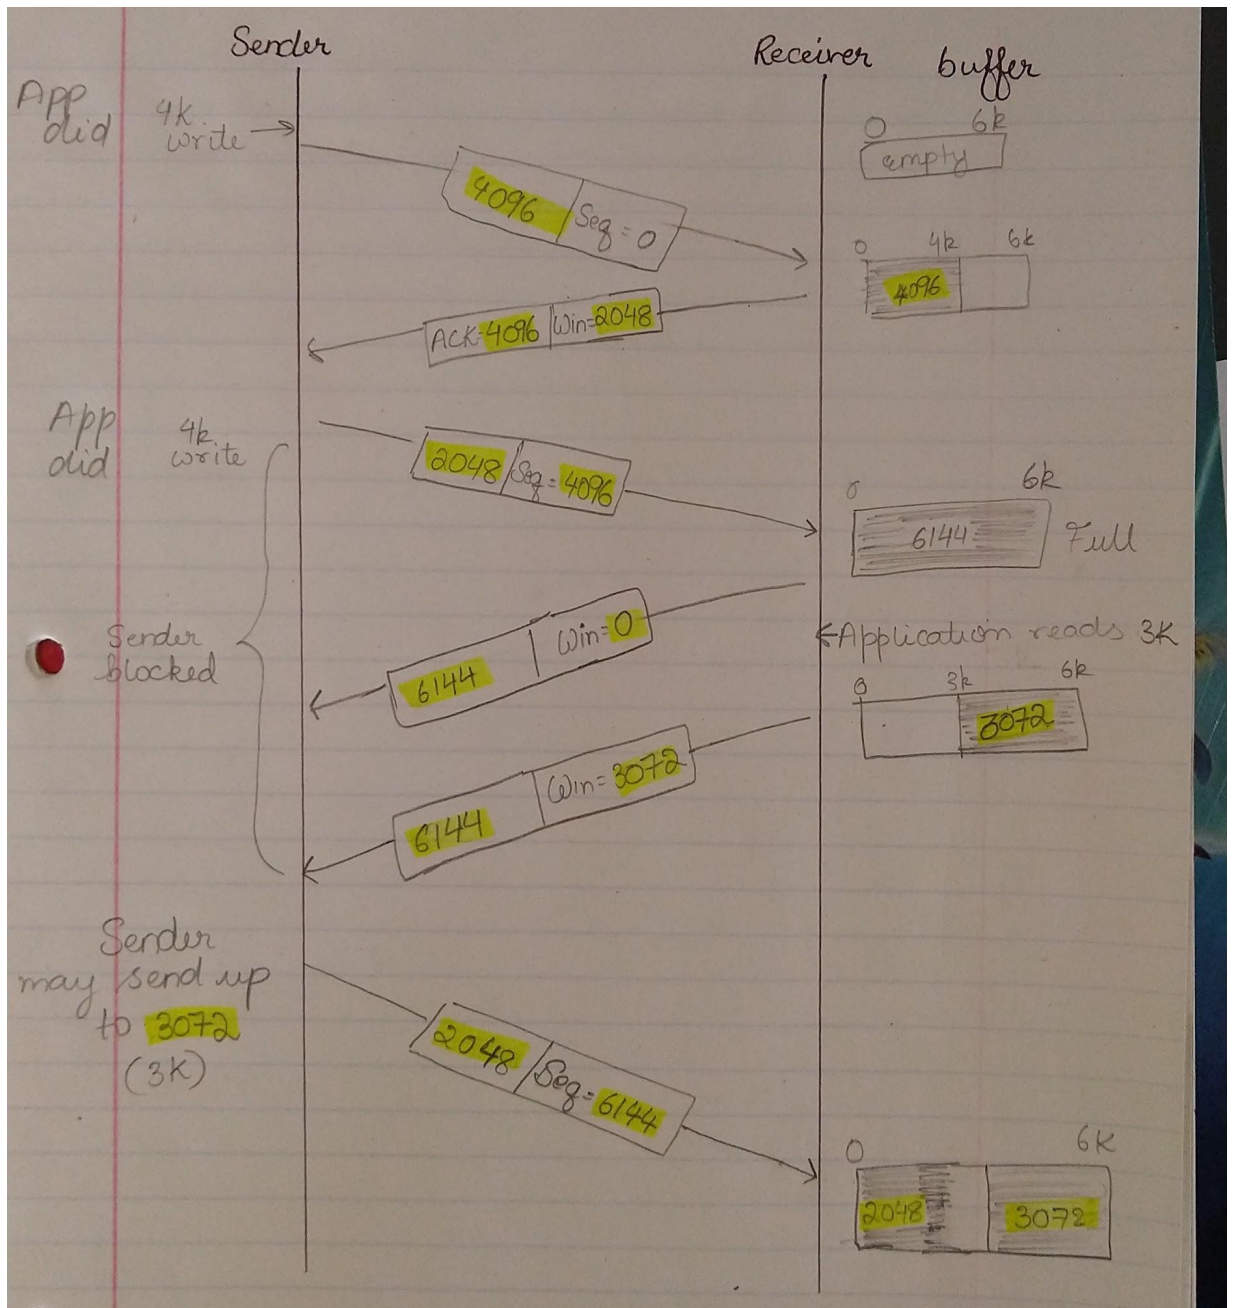 Sender
Receiver buffer
App
did
4k
write
0 6k
empty
4096 Seq = 0
0 4k 6k
4096
ACK=4096 Win=2048
App
did
4k
write
2048 Seq = 4096
0 6k
6144 Full
6144 Win=0
Sender
blocked
Application reads 3K
0 3k 6k
3072
6144 Win=3072
Sender
may send up
to 3072
(3K)
2048 Seq=6144
0 6K
2048 3072